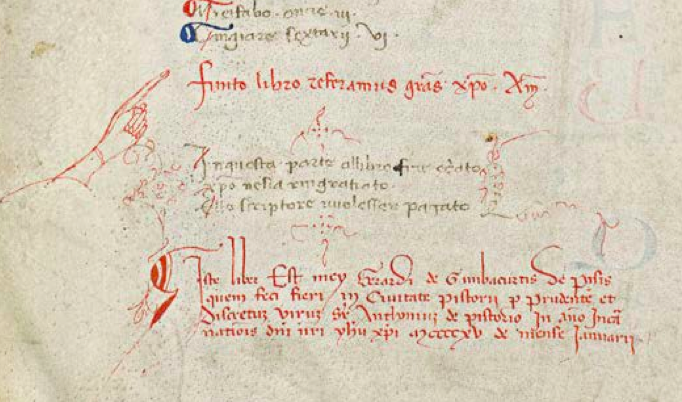 Tingiare sextarii · vi ·
finito libro referamus gras xpo · Am
In questa parte allibro fine
xpo nesia ringratiato ·
Ello scriptore vuolesser pagato
Iste liber Est mey Gerardi de Gambacurtis De pisis
quem feci fieri in Ciuitate pistorii p prudente et
discretuz viruz Anthonium de pistorio In año Inca
nationis dni nri yhu xpi Mccccxv de mense Januarii